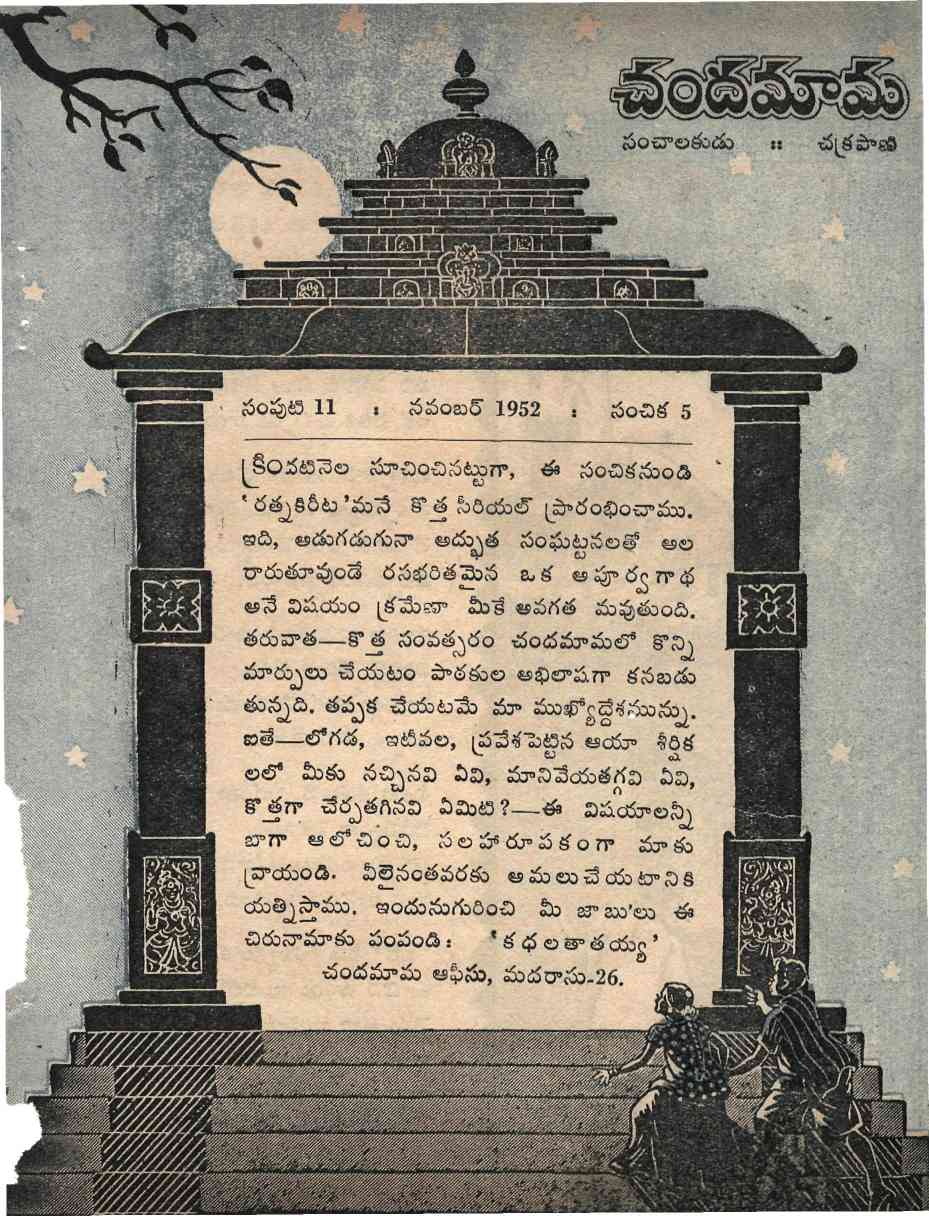 చందమామ
సంచాలకుడు :: చక్రపాణి
సంపుటి 11 : నవంబర్ 1952 : సంచిక 5
క్రిందటినెల సూచించినట్టుగా, ఈ సంచికనుండి
‘రత్నకిరీట’మనే కొత్త సీరియల్ ప్రారంభించాము.
ఇది, అడుగడుగునా అద్భుత సంఘట్టనలతో అల
రారుతూవుండే రసభరితమైన ఒక అపూర్వగాథ
అనే విషయం క్రమేణా మీకే అవగత మవుతుంది.
తరువాత—కొత్త సంవత్సరం చందమామలో కొన్ని
మార్పులు చేయటం పాఠకుల అభిలాషగా కనబడు
తున్నది. తప్పక చేయటమే మా ముఖ్యోద్దేశమున్ను.
ఐతే—లోగడ, ఇటీవల, ప్రవేశపెట్టిన ఆయా శీర్షిక
లలో మీకు నచ్చినవి ఏవి, మానివేయతగ్గవి ఏవి,
కొత్తగా చేర్పతగినవి ఏమిటి?—ఈ విషయాలన్నీ
బాగా ఆలోచించి, సలహారూపకంగా మాకు
వ్రాయండి. వీలైనంతవరకు అమలుచేయటానికి
యత్నిస్తాము. ఇందునుగురించి మీ జాబు'లు ఈ
చిరునామాకు పంపండి: ‘కథలతాతయ్య’
చందమామ ఆఫీసు, మదరాసు-26.